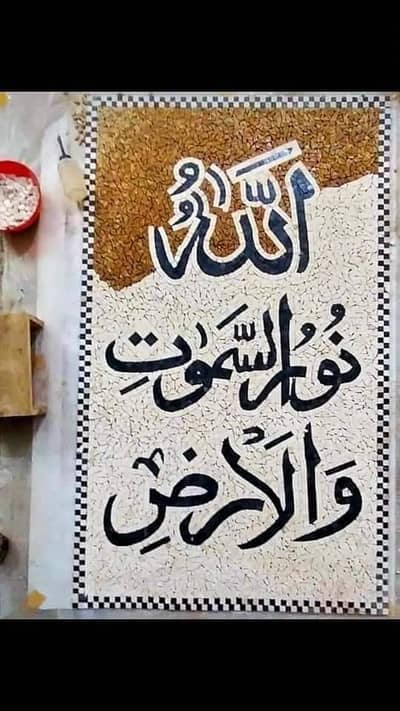 اللَّهُ
نُورُ السَّمٰوٰتِ
وَالْاَرْضِ